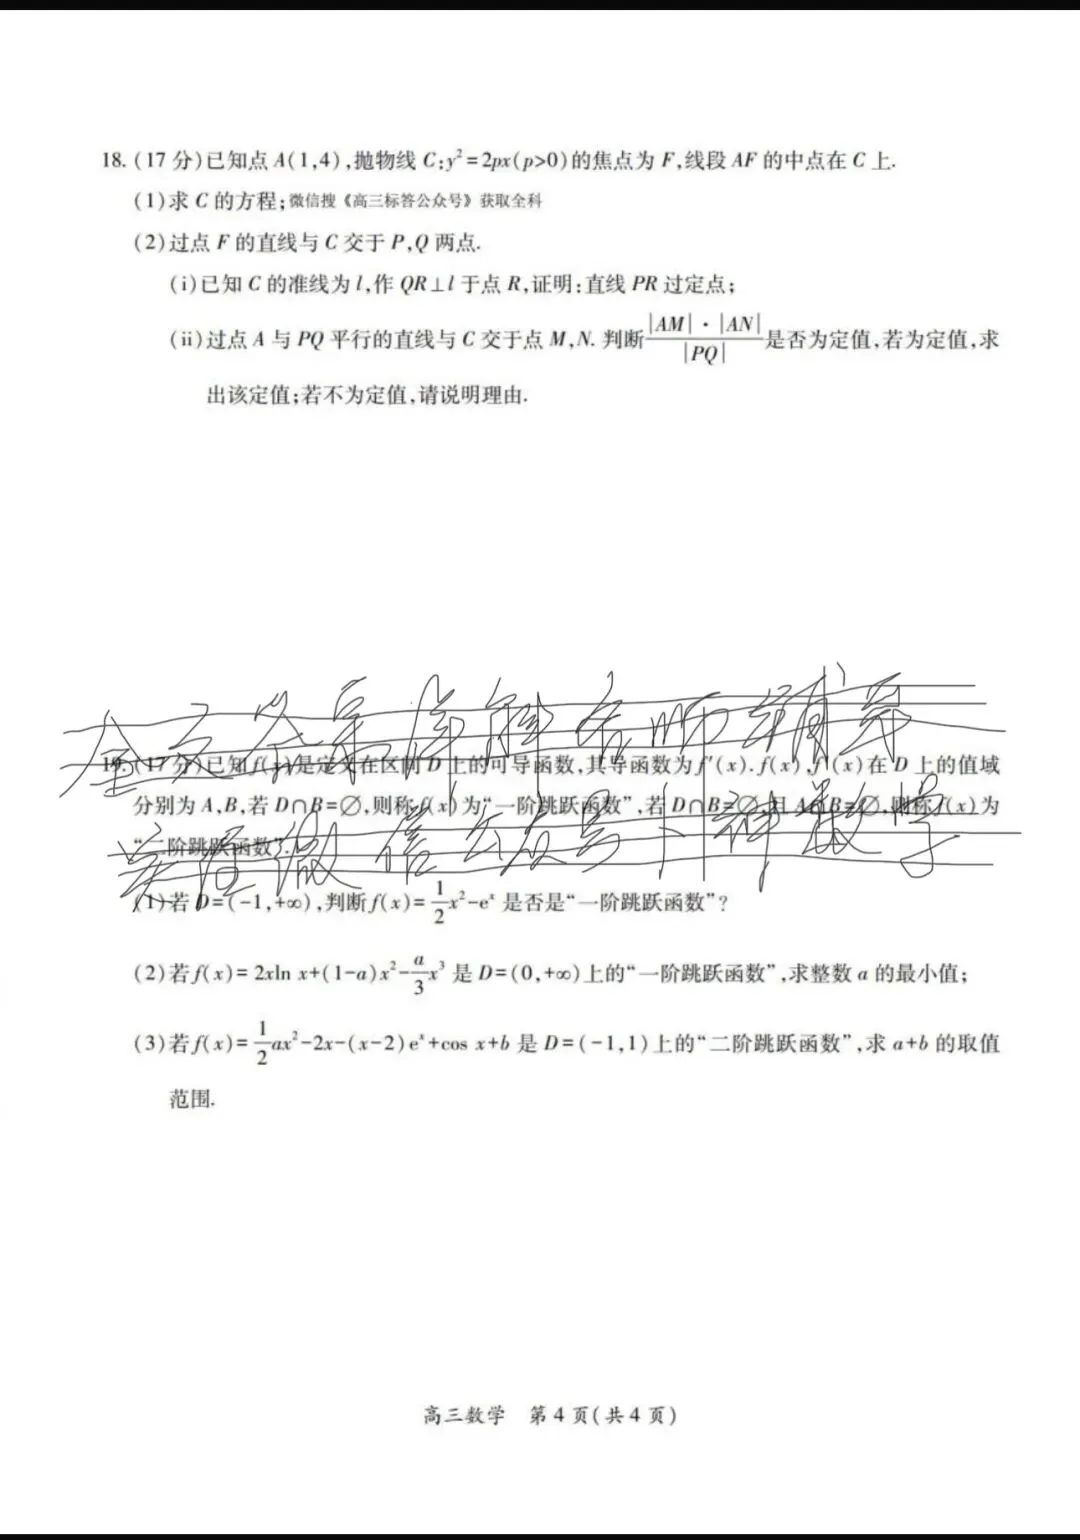 18. (17分)已知点A(1,4),抛物线C:y²=2px(p>0)的焦点为F,线段AF的中点在C上.
(1)求C的方程;微信搜《高三标答公众号》获取全科
(2)过点F的直线与C交于P,Q两点.
(i)已知C的准线为l,作QR⊥l于点R,证明:直线PR过定点;
(ii)过点A与PQ平行的直线与C交于点M,N.判断|AM|·|AN|/|PQ|是否为定值,若为定值,求
出该定值;若不为定值,请说明理由.
19. (17分)已知f(x)是定义在区间D上的可导函数,其导函数为f′(x).f(x),f′(x)在D上的值域
分别为A,B,若D∩B=∅,则称f(x)为“一阶跳跃函数”,若D∩B=∅,且A∩B=∅,则称f(x)为
“二阶跳跃函数”.
(1)若D=(-1,+∞),判断f(x)=1/2x²-eˣ是否是“一阶跳跃函数”?
(2)若f(x)=2xln x+(1-a)x²-a/3x³是D=(0,+∞)上的“一阶跳跃函数”,求整数a的最小值;
(3)若f(x)=1/2ax²-2x-(x-2)eˣ+cos x+b是D=(-1,1)上的“二阶跳跃函数”,求a+b的取值
范围.
高三数学 第4页(共4页)